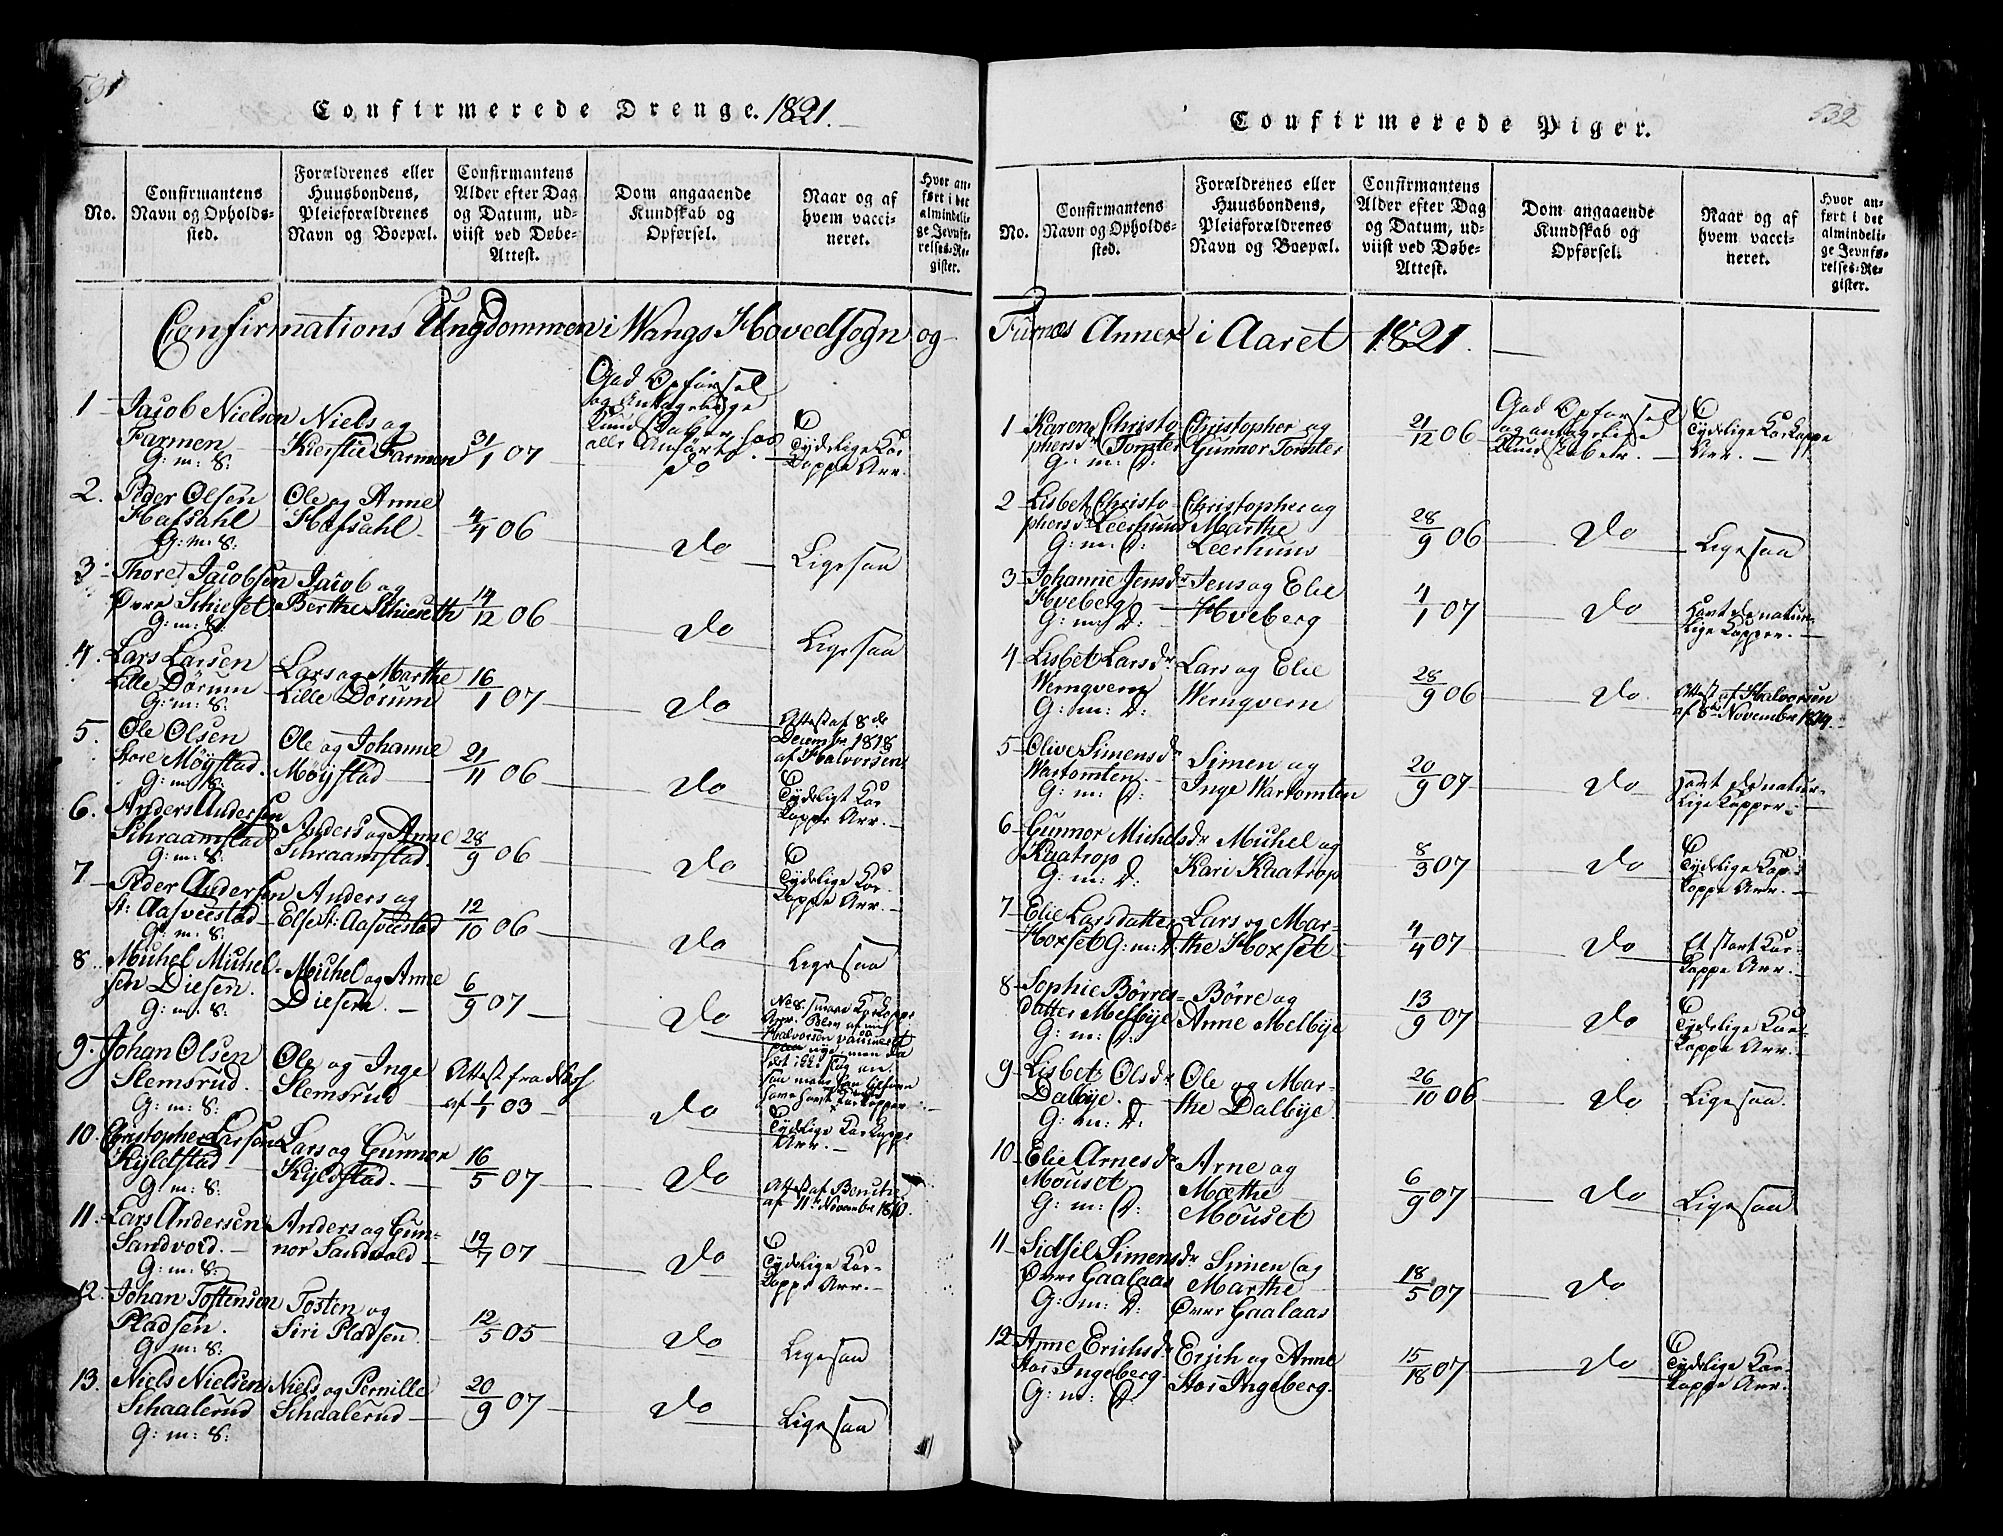 531
Confirmerede Drenge. 1821.
No.
Confirmantens
Navn og Opholds-
sted.
Forældrenes eller
Huusbondens,
Pleieforældrenes
Navn og Boepæl.
Confirmantens
Alder efter Dag
og Datum, ud-
viist ved Døbe-
Attest.
Dom angaaende
Kundskab og
Opførsel.
Naar og af
hvem vacci-
neret.
Hvor an-
ført i det
almindeli-
ge Jevnfø-
relses-Re-
gister.
Confirmations Ungdommen i Wangs Hovedsogn og
1 Jacob Nielsen
Farmen
G: m: S:
Niels og
Kierstie Farmen
31/1 07
God Opførsel
og Antagelige
Kundskaber
alle
do
Tydelige Ko-
koppe Arr.
2. Peder Olsen
Hafsahl
G: m: S:
Ole og Anne
Hafsahl
4/4 06
do
Ligesaa
3 Thore Jacobsen
Øvre Schieset
G: m: S:
Jacob og
Berthe Schieseth
14/12 06
do
Ligesaa
4. Lars Larsen
Lille Dørum
G: m: S:
Lars og Marthe
Lille Dørum
16/1 07
do
Attest af 8de
Decembr 1818
af Halvorsen
5. Ole Olsen
Store Møystad
G: m: S:
Ole og Johanne
Møystad
21/11 06
do
Tydeligt Ko-
koppe Arr.
6. Anders Andersen
Schraamstad
G: m: S:
Anders og Anne
Schraamstad.
28/9 06
do
Tydelige Ko-
koppe Arr.
7 Peder Andersen
St: Aasveestad
G: m: S:
Anders og
Else St: Aasveestad
12/10 06
do
Ligesaa
8 Michel Michel-
sen Diesen.
G: m: S:
Michel og Anne
Diesen.
6/9 07
do
No 8. smaae Kokoppe
Arr. Blev af
Halvorsen vaccineret
9. Johan Olsen
Slemsrud.
G: m: S:
Ole og Inge
Slemsrud
Attest fra
af 1/1 03
do
Tydelige Kokoppe
Arr.
10. Christopher Larsen
Kyldstad
G: m: S:
Lars og Gunnor
Kyldstad.
16/5 07
do
Attest af
af 11te Novembr 1810.
11. Lars Andersen
Sandvold.
G: m: S:
Anders og Gun-
nor Sandvold
19/7 07
do
Tydelige Ko-
koppe Arr.
12. Johan Tostensen
Pladsen.
G: m: S:
Tosten og
Siri Pladsen
12/5 05
do
Ligesaa
13. Niels Nielsen
Schaalerud
G: m: S:
Niels og Pernille
Schaalerud
20/9 07
do
Ligesaa
532
Confirmerede Piger.
No.
Confirmantens
Navn og Opholds-
sted.
Forældrenes eller
Huusbondens,
Pleieforældrenes
Navn og Boepæl.
Confirmantens
Alder efter Dag
og Datum, ud-
viist ved Døbe-
Attest.
Dom angaaende
Kundskab og
Opførsel.
Naar og af
hvem vacci-
neret.
Hvor an-
ført i det
almindeli-
ge Jevnfø-
relses-Re-
gister.
Furnæs Annex i Aaret 1821.
1 Karen Christo
phersdr Tomter
G: m: D:
Christopher og
Gunnor Tomter
21/12 06
God Opførsel
og antagelige
Kundskaber.
Tydelige Kokoppe
Arr.
2 Lisbet Christo
phersdr Leerhuus
G: m: D:
Christopher og
Marthe
Leerhuus
28/9 06
do
Ligesaa
3 Johanne Jensdr
Hveberg
G: m: D:
Jens og Elie
Hveberg
4/1 07
do
havt de natur-
lige Kopper.
4 Lisbet Larsdr
Wernqvern
G: m: D:
Lars og Elie
Wernqvern
28/9 06
do
Attest af Halvorsen
af 8de November
5 Olive Simensdr
Wartomten.
G: m: D:
Simen og
Inge Wartomten
20/9 07
do
havt de natur-
lige Kopper.
6 Gunnor Michelsdr
Kaatrop
G: m: D:
Michel og
Kari Kaatrop
8/3 07
do
Tydelige Ko-
koppe Arr.
7 Elie Larsdatter
Hoxset G: m: D:
Lars og Mar-
the Hoxset
4/4 07
do
Et stort Ko-
koppe Arr.
8 Sophie Børres-
datter Melbye
G: m: D:
Børre og
Anne Melbye
13/9 07
do
Tydelige Ko-
koppe Arr.
9 Lisbet Olsdr
Dalbye.
G: m: D:
Ole og Mar-
the Dalbye.
26/10 06
do
Ligesaa.
10 Elie Arnesdr
Mouset
G: m: D:
Arne og
Marthe
Mouset
6/9 07
do
Ligesaa
11 Sidsil Simensdr
Øvre Gaalaas
G: m: D:
Simen og
Marthe
Øvre Gaalaas
18/5 07
do
12 Anne Erichsdr
Stor Ingeberg
G: m: D:
Erich og Anne
Stor Ingeberg
15/18 07
do
Tydelige Ko-
koppe Arr.